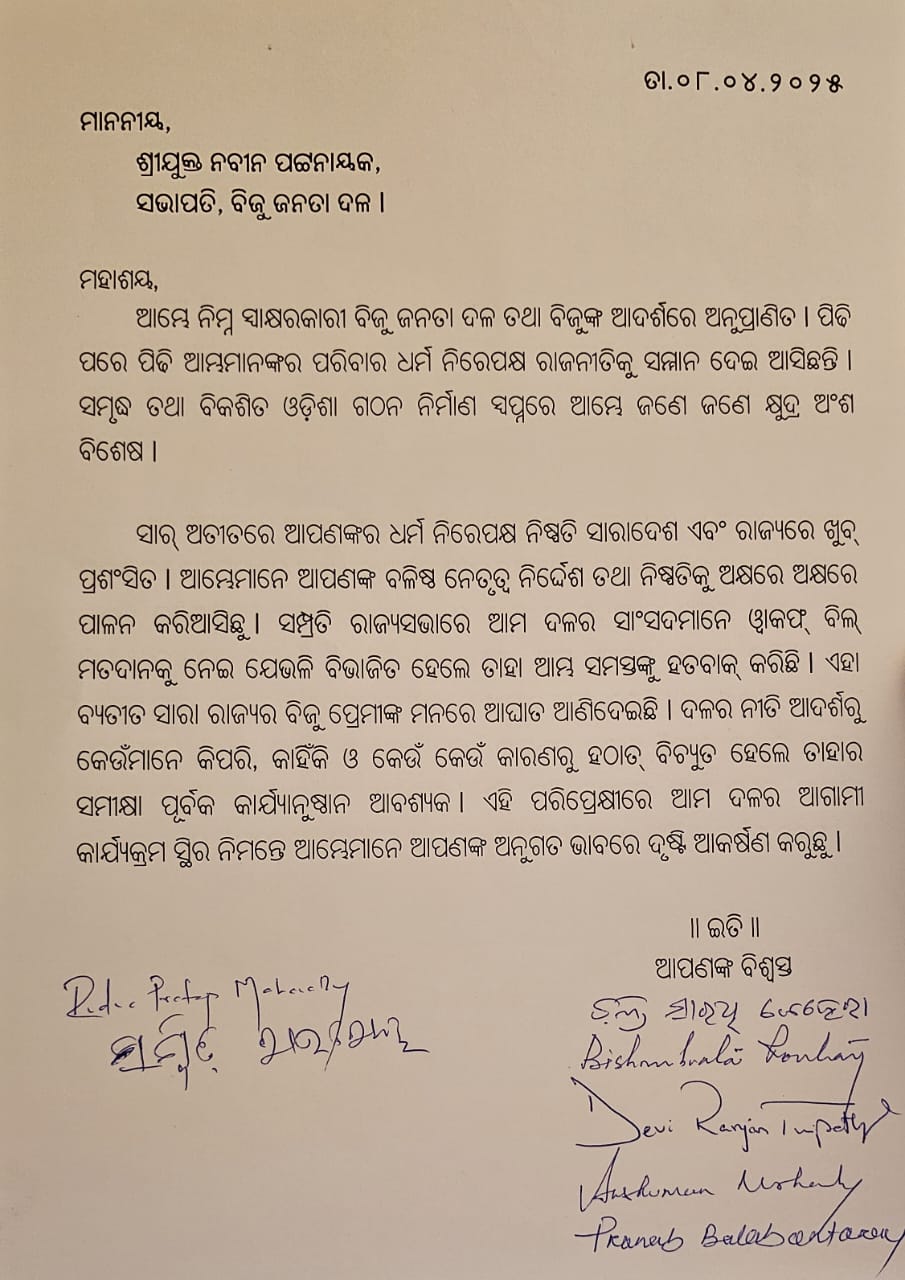 ତା.୦୮.୦୪.୨୦୨୫
ମାନନୀୟ,
ଶ୍ରୀଯୁକ୍ତ ନବୀନ ପଟ୍ଟନାୟକ,
ସଭାପତି, ବିଜୁ ଜନତା ଦଳ ।
ମହାଶୟ,
ଆମ୍ଭେ ନିମ୍ନ ସ୍ୱାକ୍ଷରକାରୀ ବିଜୁ ଜନତା ଦଳ ତଥା ବିଜୁଙ୍କ ଆଦର୍ଶରେ ଅନୁପ୍ରାଣିତ । ପିଢି
ପରେ ପିଢି ଆମ୍ଭମାନଙ୍କର ପରିବାର ଧର୍ମ ନିରେପକ୍ଷ ରାଜନୀତିକୁ ସମ୍ମାନ ଦେଇ ଆସିଛନ୍ତି ।
ସମୃଦ୍ଧ ତଥା ବିକଶିତ ଓଡ଼ିଶା ଗଠନ ନିର୍ମାଣ ସ୍ୱପ୍ନରେ ଆମ୍ଭେ ଜଣେ ଜଣେ କ୍ଷୁଦ୍ର ଅଂଶ
ବିଶେଷ ।
ସାର୍ ଅତୀତରେ ଆପଣଙ୍କର ଧର୍ମ ନିରେପକ୍ଷ ନିଷ୍ପତି ସାରାଦେଶ ଏବଂ ରାଜ୍ୟରେ ଖୁବ୍
ପ୍ରଶଂସିତ । ଆମ୍ଭେମାନେ ଆପଣଙ୍କ ବଳିଷ୍ଠ ନେତୃତ୍ୱ ନିର୍ଦ୍ଦେଶ ତଥା ନିଷ୍ପତିକୁ ଅକ୍ଷରେ ଅକ୍ଷରେ
ପାଳନ କରିଆସିଛୁ । ସମ୍ପ୍ରତି ରାଜ୍ୟସଭାରେ ଆମ ଦଳର ସାଂସଦମାନେ ୱାକଫ୍ ବିଲ୍
ମତଦାନକୁ ନେଇ ଯେଭଳି ବିଭାଜିତ ହେଲେ ତାହା ଆମ୍ଭ ସମସ୍ତଙ୍କୁ ହତବାକ୍ କରିଛି । ଏହା
ବ୍ୟତୀତ ସାରା ରାଜ୍ୟର ବିଜୁ ପ୍ରେମୀଙ୍କ ମନରେ ଆଘାତ ଆଣିଦେଇଛି । ଦଳର ନୀତି ଆଦର୍ଶରୁ
କେଉଁମାନେ କିପରି, କାହିଁକି ଓ କେଉଁ କେଉଁ କାରଣରୁ ହଠାତ୍ ବିଚ୍ୟୁତ ହେଲେ ତାହାର
ସମୀକ୍ଷା ପୂର୍ବକ କାର୍ଯ୍ୟାନୁଷ୍ଠାନ ଆବଶ୍ୟକ । ଏହି ପରିପ୍ରେକ୍ଷୀରେ ଆମ ଦଳର ଆଗାମୀ
କାର୍ଯ୍ୟକ୍ରମ ସ୍ଥିର ନିମନ୍ତେ ଆମ୍ଭେମାନେ ଆପଣଙ୍କ ଅନୁଗତ ଭାବରେ ଦୃଷ୍ଟି ଆକର୍ଷଣ କରୁଛୁ ।
॥ ଇତି ॥
ଆପଣଙ୍କ ବିଶ୍ୱସ୍ତ
Devi Ranjan Tripathy
Anshuman Mohanty
Pranab Balabantaray